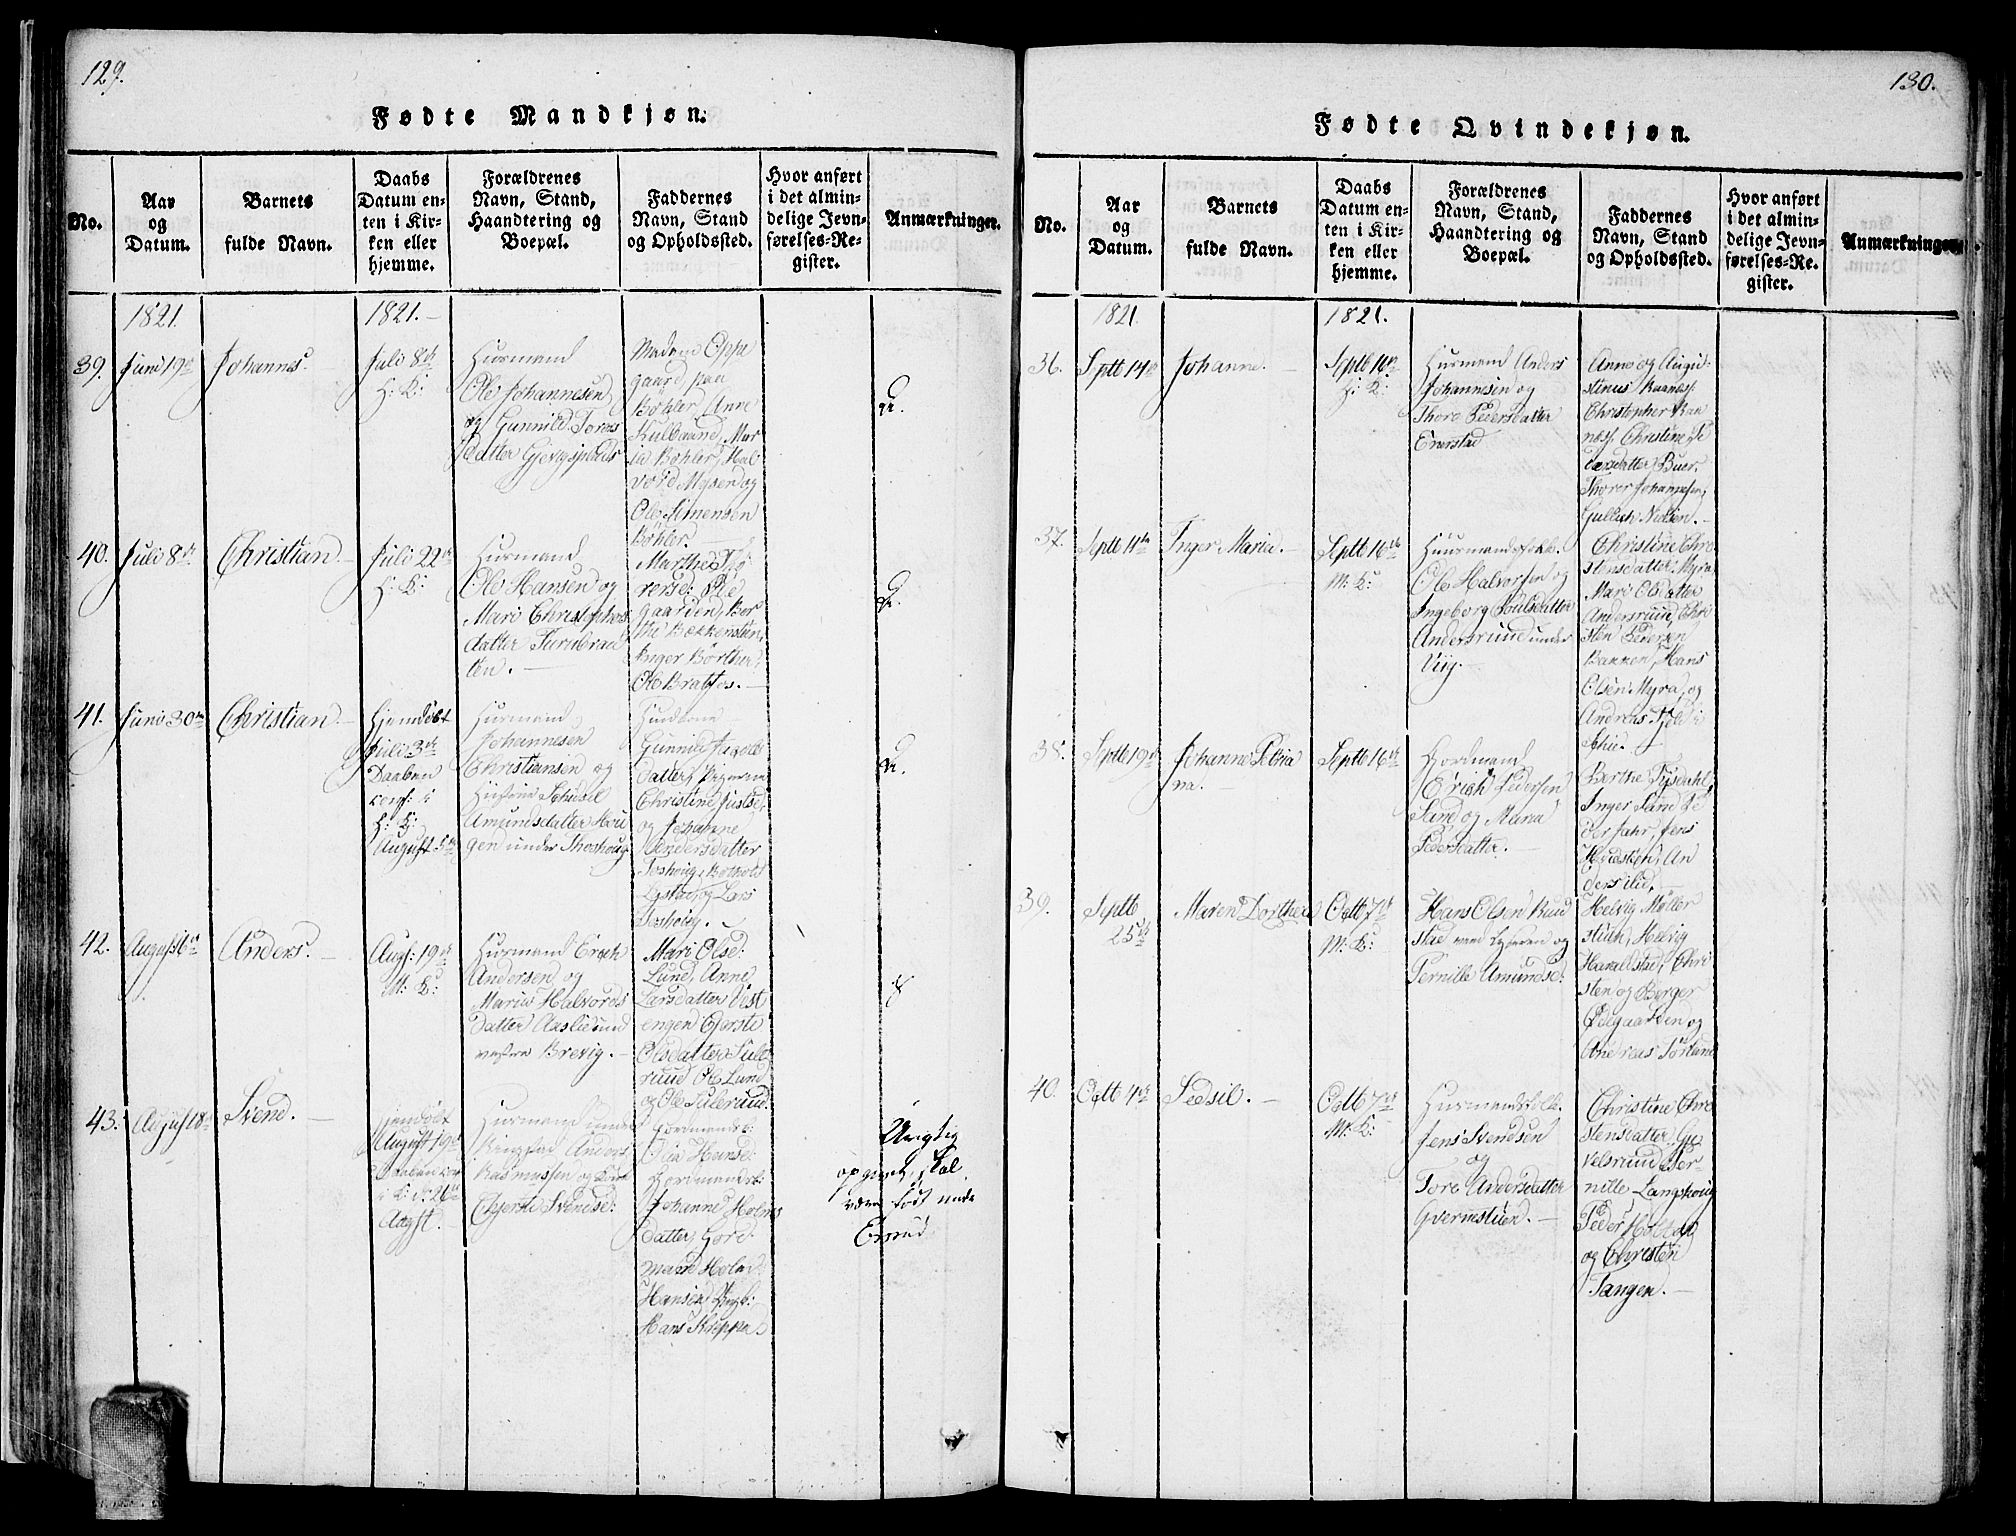 129.
Fødte Mandkjøn.
No.
Aar
og
Datum.
Barnets
fulde Navn.
Daabs
Datum en-
ten i Kir-
ken eller
hjemme.
Forældrenes
Navn, Stand,
Haandtering og
Boepæl.
Faddernes
Navn, Stand
og Opholdssted.
Hvor anført
i det almin-
delige Jevn-
førelses-Re-
gister.
Anmærkninger.
1821.
1821.
39.
Juni 19de
Johannes.
Juli 8de
H: K:
Huusmand
Ole Johannesen
og Gunnild Tores
datter
Madam Oppe
gaard paa
Bøhler, Anne
Mar
ia Bøhler, Hal
vord Mysen og
Ole Simensen
Bøhler.
40.
Juli 8de
Christian.
Juli 22de
H: K:
Huusmand
Ole Hansen og
Mari Christophers
datter
ten.
Marthe
gaarden, Ber
the Bekkensten,
Inger
Ole Bratfos.
41.
Juni 30te
Christian
Hjemdøbt
Juli 3de
Daaben
conf: i
H: K:
August 5te
Huusmand
Johannesen
Christiansen og
Hustrue
Amundsdatter Hau
gen under Thoshoug
Gunnild
datter, Pigerne
Christine
og Johanne
Andersdatter
Toshoug,
og Lars
Toshoug.
42.
August 6te
Anders.
Aug: 19de
M: K:
Huusmand Erich
Andersen og
Maria Halvords
datter
Brevig.
Mari Olsd:
Lund, Anne
Larsdatter Vest
engen Gjerste
Olsdatter Sule
ruud Ole Lund
og Ole Sulerund.
43.
August 18de
Svend.
Hjemdøbt
August 19de
Daaben
i K: d: 26de
Augst.
Huusmand under
Ringstad Anders
Rasmussen og Kone
Gjerte Svendsd:
Gaardmands:
Olia Hansd:
Gaardmands:
Johanne Holms
datter, Gaard
mand Holm
Hansen,
Hans Kreppen.
Urigtig
opgivet, skal
være født under
130.
Fødte Qvindekjøn.
No.
Aar
og
Datum.
Barnets
fulde Navn.
Daabs
Datum en-
ten i Kir-
ken eller
hjemme.
Forældrenes
Navn, Stand,
Haandtering og
Boepæl.
Faddernes
Navn, Stand
og Opholdssted.
Hvor anført
i det almin-
delige Jevn-
førelses-Re-
gister.
Anmærkninger.
1821
1821.
36.
Septb 14de
Johanne.
Septb 16de
H: K:
Huusmand Anders
Johannesen og
Thore Pedersdatter
Enerstad
Anne og Augu-
stinus Raanæss
Christopher Raa
næss, Christine Pe
dersdatter Buer,
Thorer Johannesen,
Gullich Nielsen.
37.
Septb 11te
Inger Maria.
Septb 16de
M: K:
Huusmandsfolk
Ole Halvorsen og
Ingeborg Poulsdatter
Andersruud under
Viig.
Christine Chri
stensdatter Myra
Mari Olsdatter
Andersruud, Chri
sten Pedersen
Bakken, Hans
Olsen Myra, og
Andreas Fjeld i
38.
Septb 19de
Johanne Petria
na.
Septb 16de
Gaardmand
Erich Pedersen
Sand og Maria
Pedersdatter.
Berthe
Inger Sand Pe
der Jahr, Jens
An
ders Lie.
39.
Septb
25de
Maren Dorthea
Octb 7de
M: K:
Hans Olsen Ruud
stad ved og
Pernille Amundsd:
Helvig Møller
stuen, Helvig
Haraldstad, Chri
sten og Berger
Ødegaarden og
Andreas Sørlund
40.
Octb 4de
Sedsil.
Octb 7de
M: K:
Huusmandsfolk
Jens Svendsen
og
Tore Andersdatter
Qvernestuen.
Christine Chri
stensdatter Gu
velsruud, Per-
nille Langhoug
Peder
og Christen
Tangen.